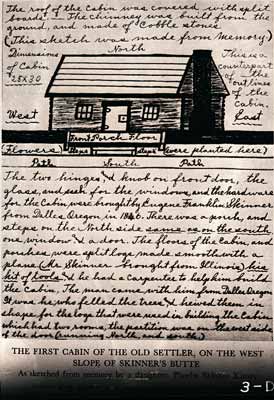 The roof of the cabin was covered with split
boards. The Chimney was built from the
ground, and made of Cobble stones.
(This sketch was made from Memory)
North
Dimensions
of Cabin
28x30
This is a
counterpart
of the
out lines
of the
cabin.
West
East
Front Porch Floor
steps
steps
(Flowers)
(were planted here)
Path South Path
The two hinges & knob on front door, the
glass, and sash for the windows, and the hardware
for the Cabin, were brought by Eugene Franklin Skinner
from Dalles Oregon in 1846. There was a porch, and
steps on the North side same as on the south,
one window & a door. The floors of the Cabin, and
porches, were split logs made smooth with a
plane (Mr. Skinner brought from Illinois) his
kit of tools & he had a Carpenter to help him build
the Cabin. The man came with him from Dalles Oregon
It was he, who felled the trees & hewed them in
shape for the logs that were used in building the Cabin
which had two rooms, the partition was on the west side
of the door (running North, and south.)
THE FIRST CABIN OF THE OLD SETTLER, ON THE WEST
SLOPE OF SKINNER'S BUTTE
As sketched from memory by a
3-D